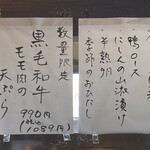 鴨ロース
にしんの山椒漬け
半熟卵
季節のおひたし
数量限定
黒毛和牛
モモ肉の
天ぷら
990円
(税込1089円)